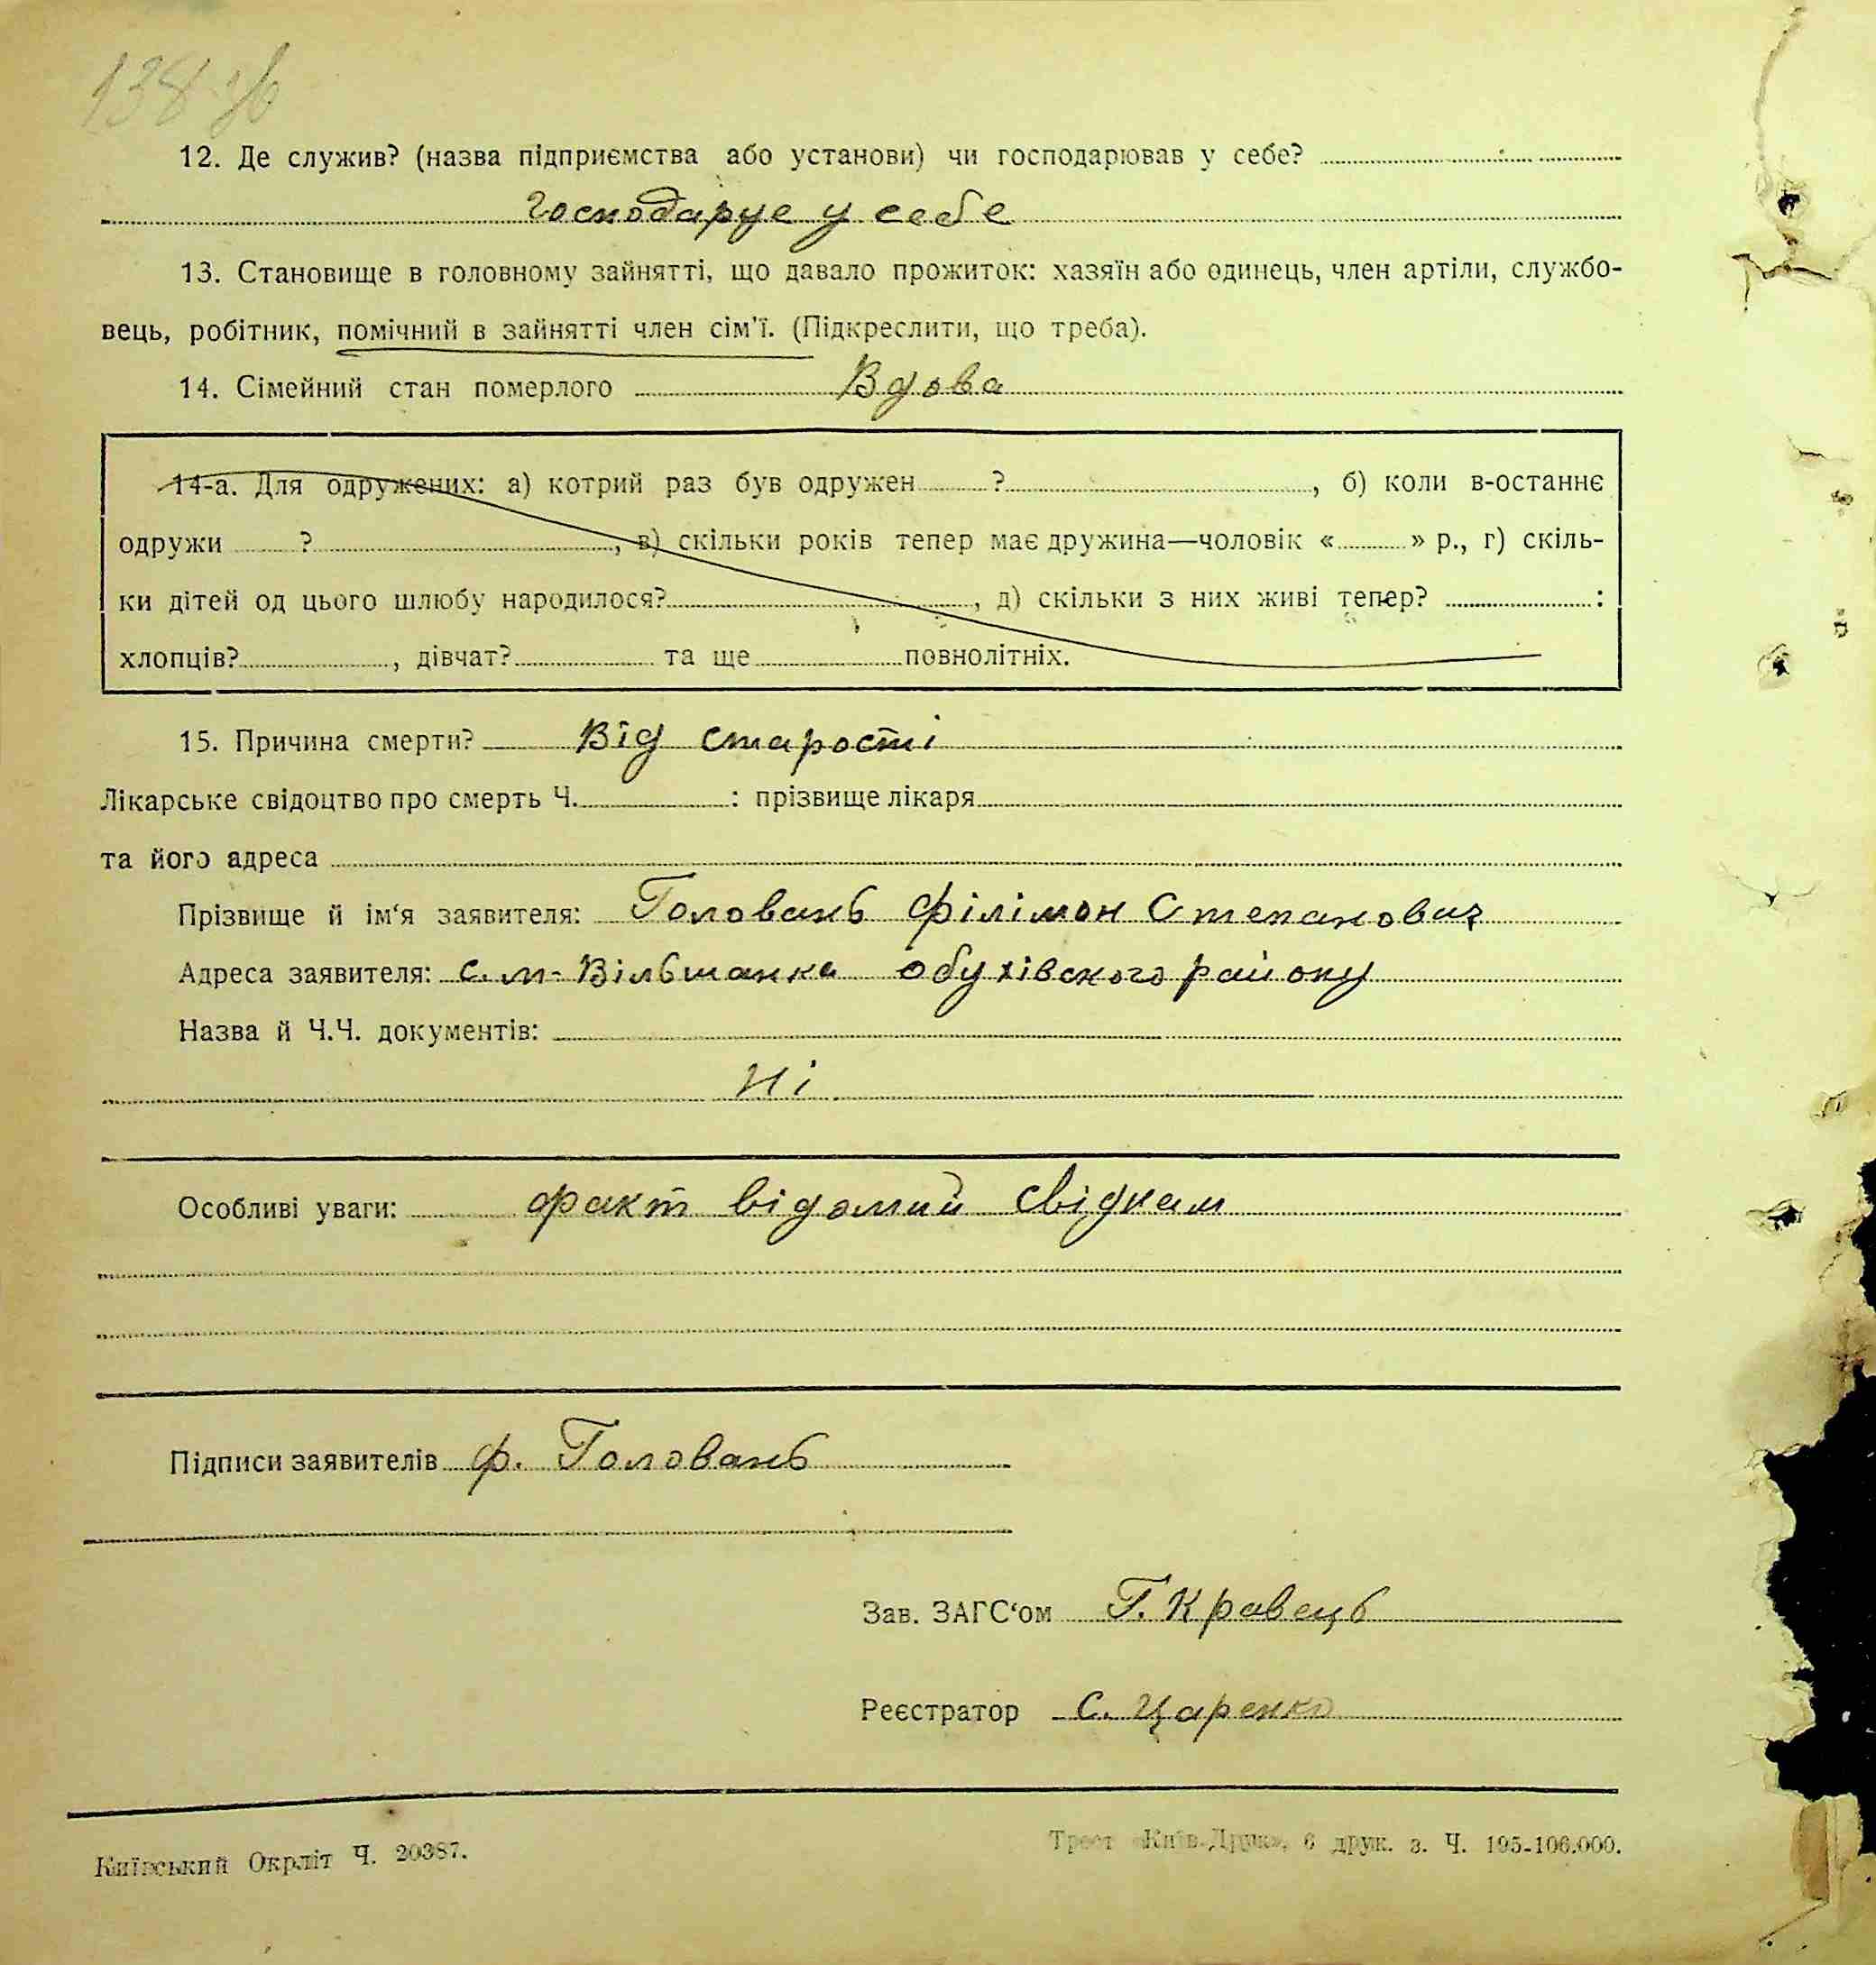 138 зв
12. Де служив? (назва підприємства або установи) чи господарював у себе?
Господарує у себе
13. Становище в головному зайнятті, що давало прожиток: хазяїн або одинець, член артіли, службо-
вець, робітник, помічний в зайнятті член сім'ї. (Підкреслити, що треба).
14. Сімейний стан померлого Вдова
14-а. Для одружених: а) котрий раз був одружен ? , б) коли в-останнє
одружи ? , в) скільки років тепер має дружина—чоловік « » р., г) скіль-
ки дітей од цього шлюбу народилося? , д) скільки з них живі тепер? :
хлопців? , дівчат? та ще повнолітніх.
15. Причина смерти? Від старості
Лікарське свідоцтво про смерть Ч. : прізвище лікаря
та його адреса
Прізвище й ім'я заявителя: Головань Філімон Степанович
Адреса заявителя: с. м-Вільшанка Обухівского району
Назва й Ч.Ч. документів:
Ні
Особливі уваги: факт відомий свідкам
Підписи заявителів Ф. Головань
Зав. ЗАГС'ом Г. Кравець
Реєстратор С. Царенко
Київський Окрліт Ч. 20387.
Трест «Київ-Друк», 6 друк. з. Ч. 195-106.000.